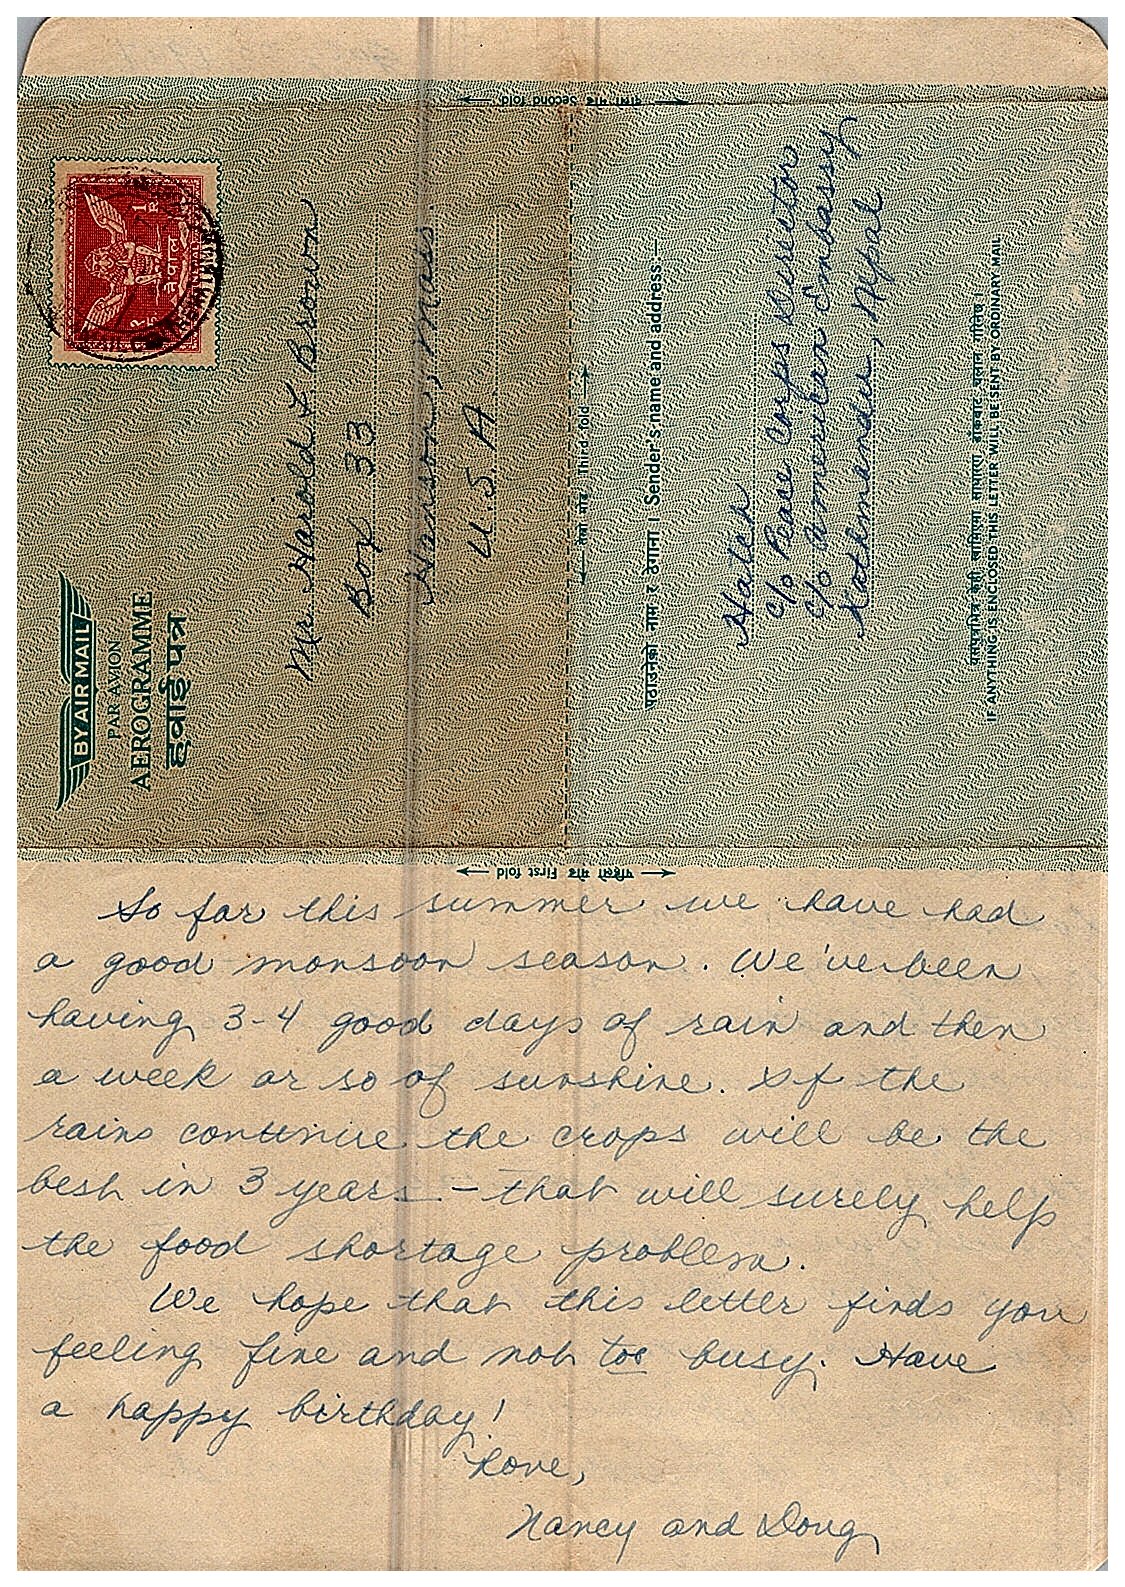 ← Second fold दोस्रो मोड →
BY AIR MAIL
PAR AVION
AEROGRAMME
हवाई पत्र
नेपाल
Mr. Harold L. Brown
Box 33
Hanson, Mass
U.S.A.
← तेस्रो मोड Third fold →
पठाउनेको नाम र ठेगाना । Sender's name and address:—
Hatch
c/o Peace Corps Director
c/o American Embassy
Kathmandu, Nepal
IF ANYTHING IS ENCLOSED THIS LETTER WILL BE SENT BY ORDINARY MAIL
← First fold पहिलो मोड →
So far this summer we have had
a good monsoon season. We've been
having 3-4 good days of rain and then
a week or so of sunshine. If the
rains continue the crops will be the
best in 3 years - that will surely help
the food shortage problem.
We hope that this letter finds you
feeling fine and not too busy. Have
a happy birthday!
Love,
Nancy and Doug